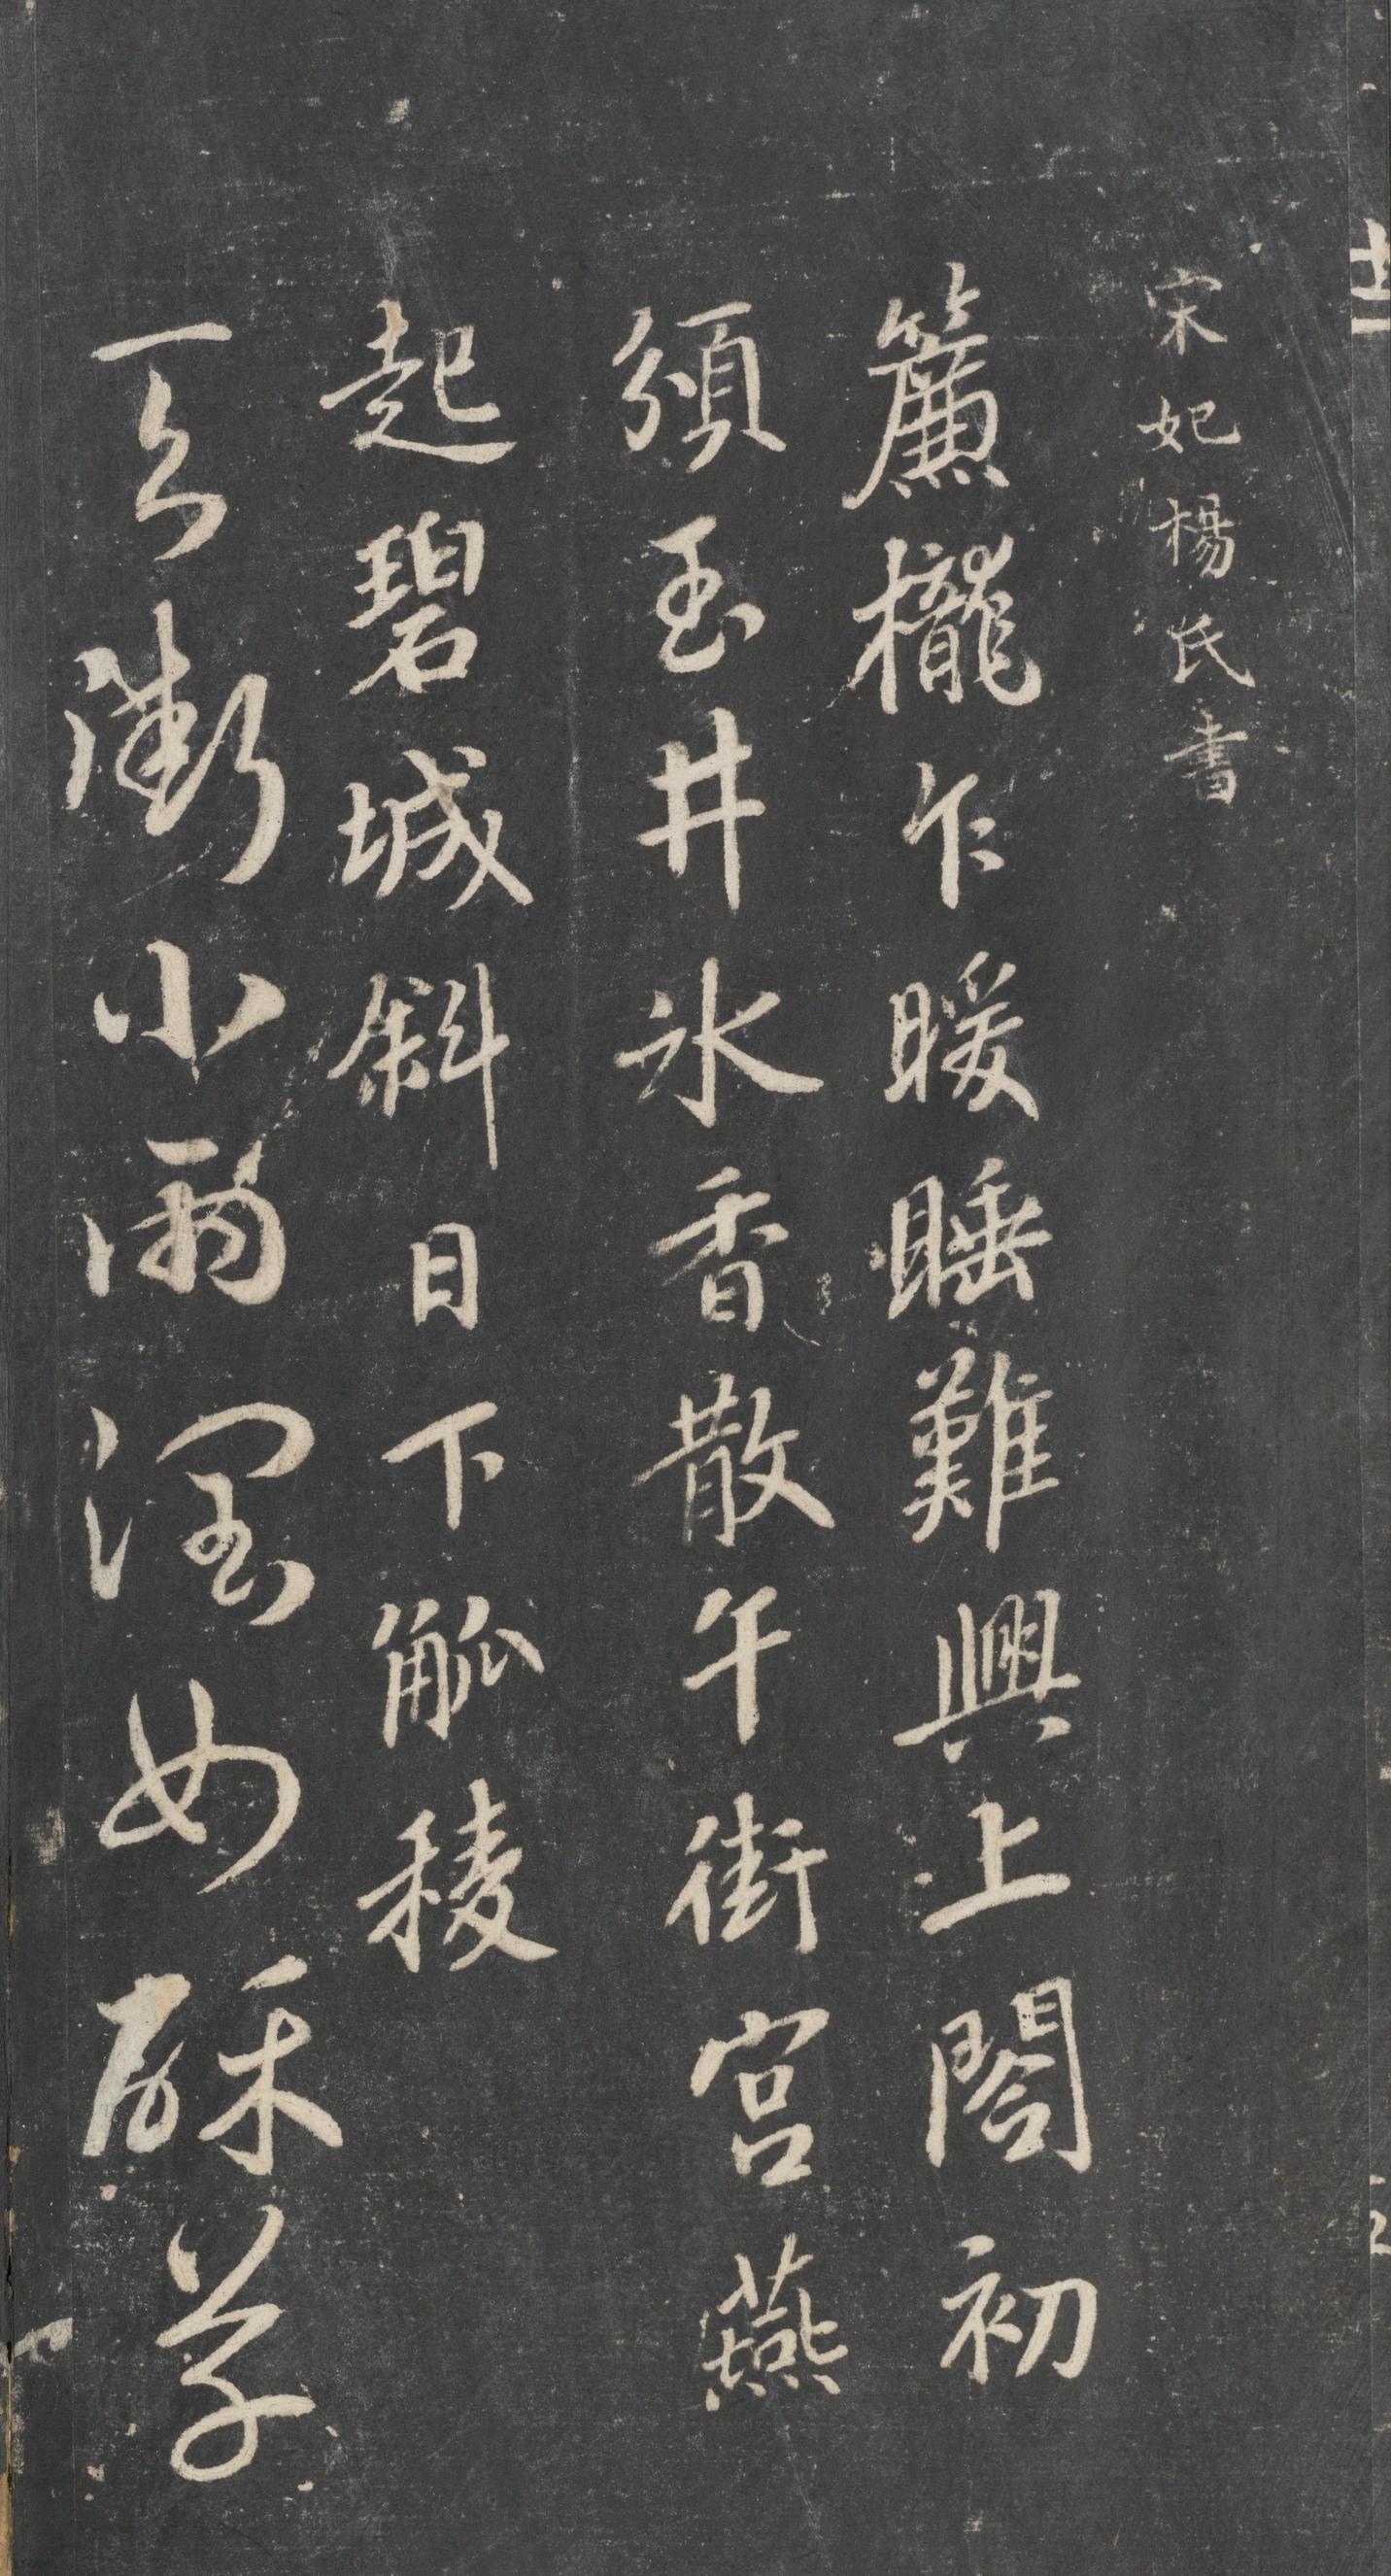 宋妃楊氏書
簾櫳乍暖睡難興上閤初
頒玉井氷香散午街宮燕
起碧城斜日下觚稜
天街小雨潤如酥草